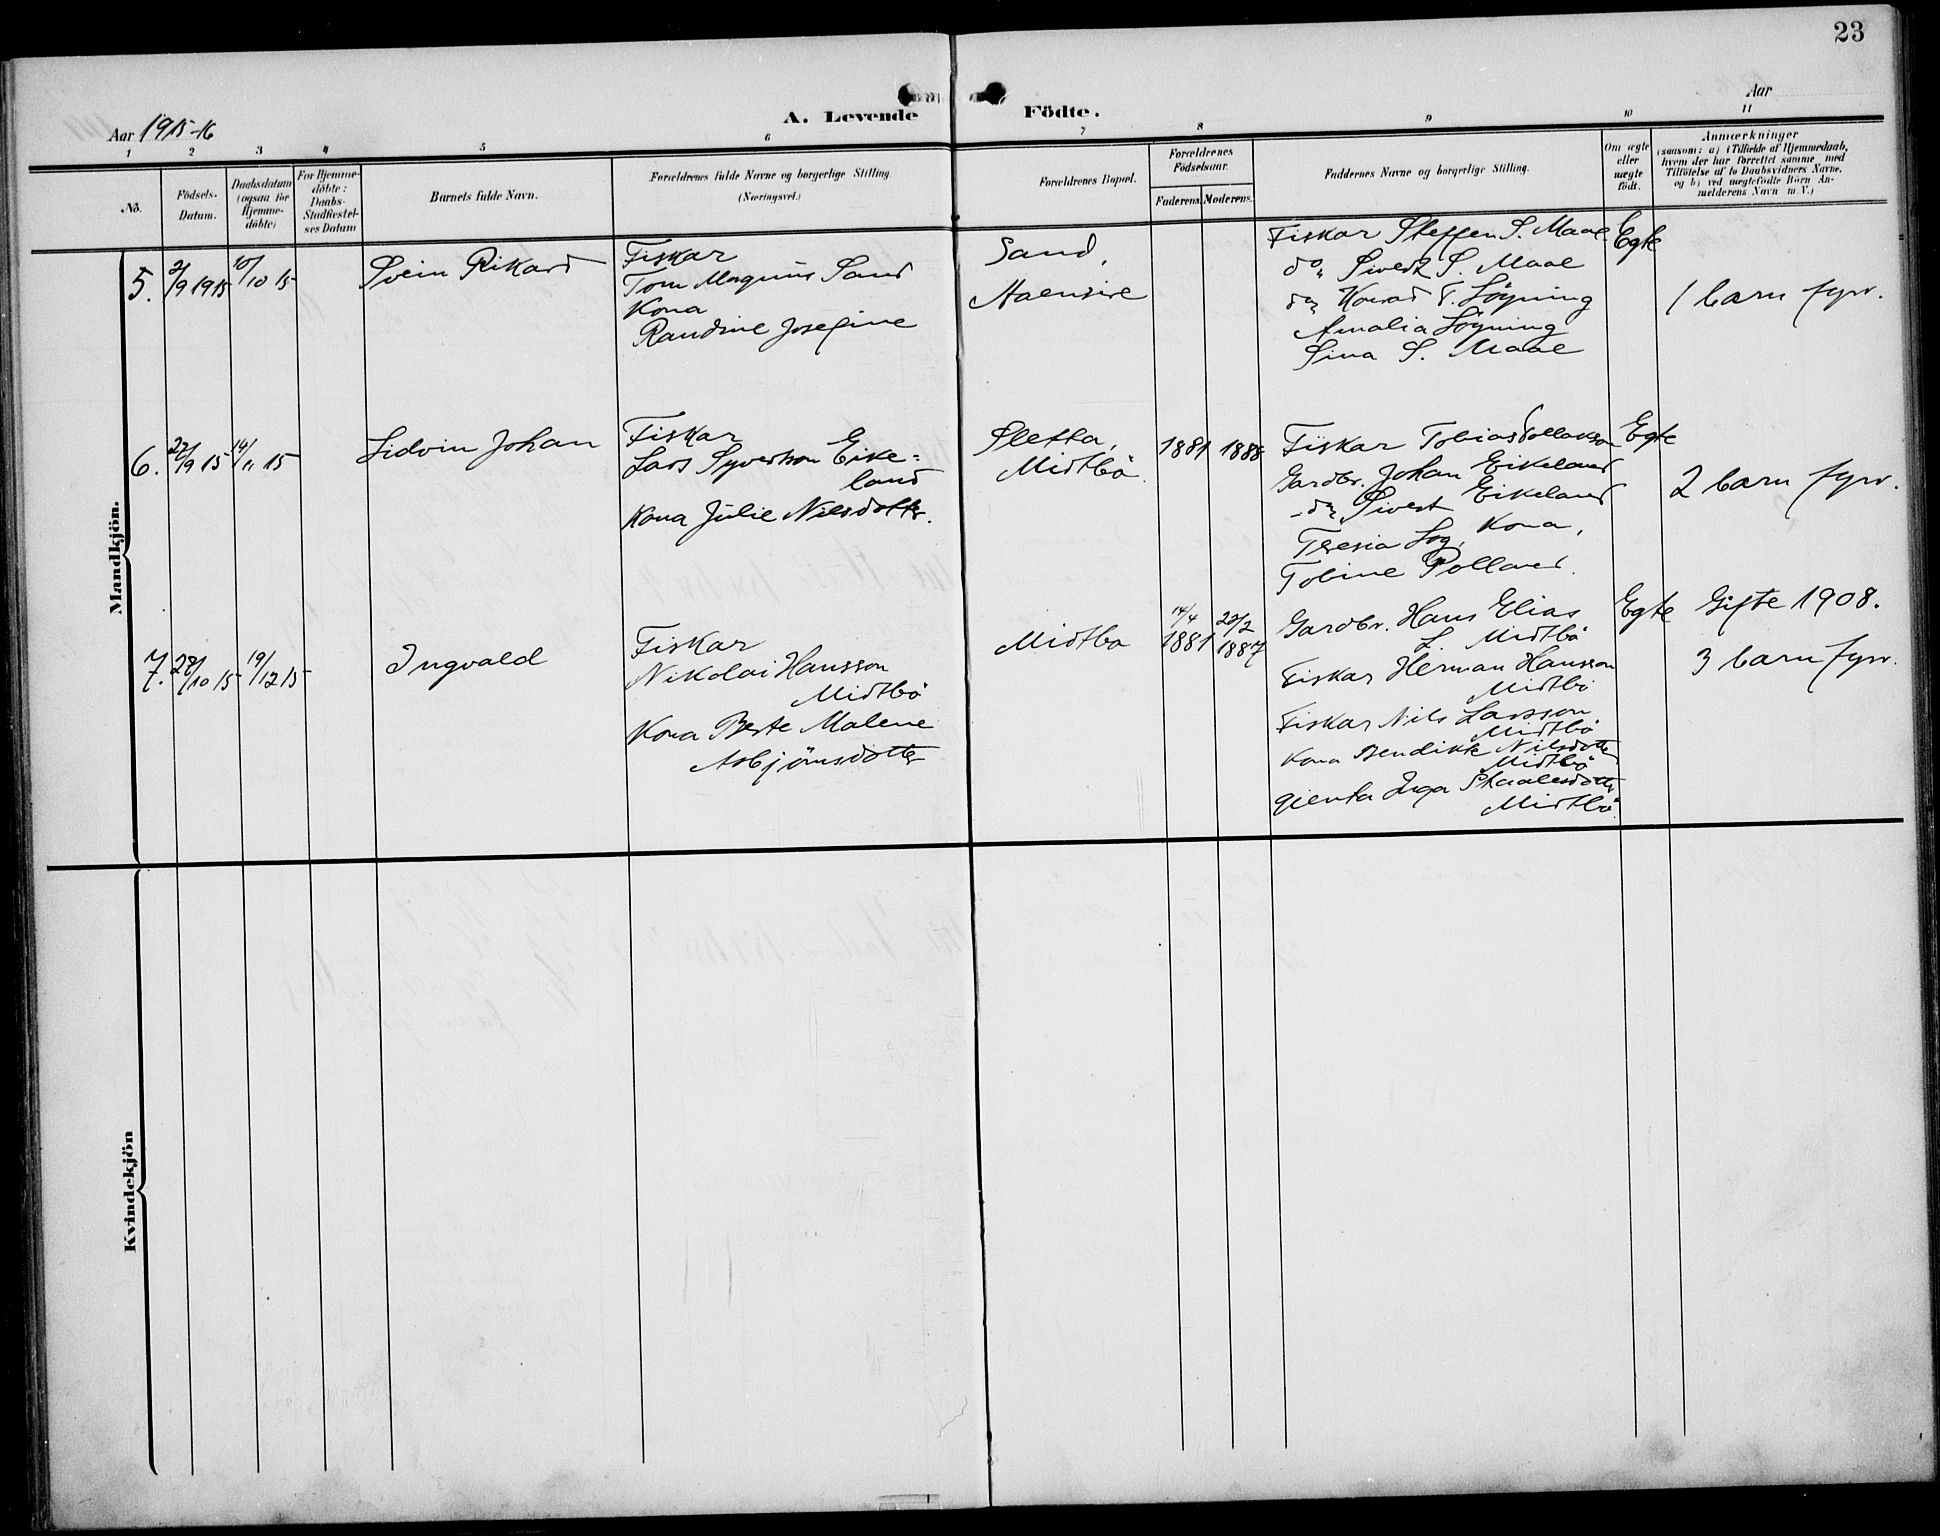 23
Aar 1915-16
A. Levende Födte.
Aar
1 2 3 4 5 6 7 8 9 10 11
No.
Födsels-
Datum.
Daabsdatum
(ogsaa for
Hjemme-
döbte)
For Hjemme-
döbte:
Daabs-
Stadfæstel-
ses Datum
Barnets fulde Navn.
Forældrenes fulde Navne og borgerlige Stilling.
(Næringsvei.)
Forældrenes Bopæl.
Forældrenes
Födselsaar.
Faderens. Moderens.
Faddernes Navne og borgerlige Stilling.
Om ægte
eller
uægte
födt.
Anmærkninger
(saasom: a) i Tilfælde af Hjemmedaab,
hvem der har forrettet samme, med
Tilföielse af to Daabsvidners Navne,
og b) ved uægtefödte Börn An-
melderens Navn m. V.)
Mandkjön.
5.
2/9 1915
10/10 15
Svein Rikard
Fiskar
Tom Magnus Sand
Kona
Randine Josefine
Sand,
Fiskar Steffen S. Maae
do, Sivert S. Maae
do, Konrad T. Løgning
Amalia Løgning
Sina S. Maae
Egte
1 barn fyrr.
6.
22/9 15
14/11 15
Lidvin Johan
Fiskar
Lars Syvertson Eike=
land
Kona Julie Nilsdotter.
Sletta,
Midtbö
1881
1888
Fiskar Tobias
Gardbr. Johan Eikeland
do, Sivert Eikeland
Teresia Log, Kona,
Tobine Polland.
Egte
2 barn fyrr.
7.
28/10 15
19/12 15
Ingvald
Fiskar
Nikolai Hansson
Midtbö
Kona Berte Malene
Asbjörnsdotter
Midtbo
14/4
1881
22/2
1887
Gardbr. Hans Elias
L. Midtbö
Fiskar Herman Hansson
Midtbö
Fiskar Nils Larsson
Midtbö
Kona Bendikke Nilsdotter
Midtbö
gjenta Inga Staalesdotter
Midtbö.
Egte
Gifte 1908.
3 barn fyrr.
Kvindekjön